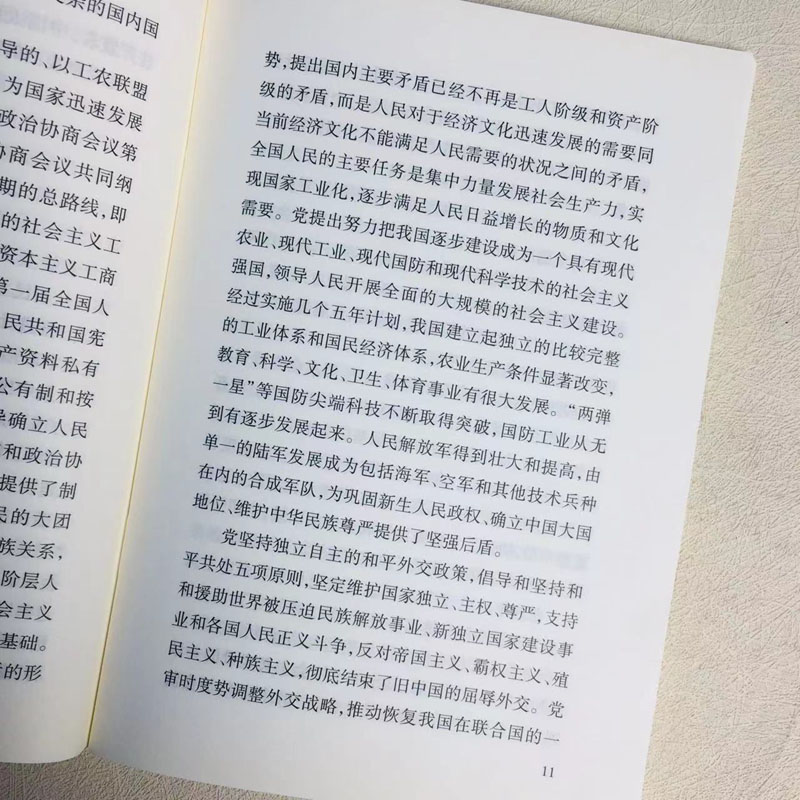 的国内国
导的、以工农联盟
为国家迅速发展
政治协商会议第
协商会议共同纲
期的总路线，即
的社会主义工
资本主义工商
第一届全国人
民共和国宪
产资料私有
公有制和按
导确立人民
和政治协
提供了制
民的大团
族关系，
阶层人
会主义
基础。
的形
势，提出国内主要矛盾已经不再是工人阶级和资产阶
级的矛盾，而是人民对于经济文化迅速发展的需要同
当前经济文化不能满足人民需要的状况之间的矛盾，
全国人民的主要任务是集中力量发展社会生产力，实
现国家工业化，逐步满足人民日益增长的物质和文化
需要。党提出努力把我国逐步建设成为一个具有现代
农业、现代工业、现代国防和现代科学技术的社会主义
强国，领导人民开展全面的大规模的社会主义建设。
经过实施几个五年计划，我国建立起独立的比较完整
的工业体系和国民经济体系，农业生产条件显著改变，
教育、科学、文化、卫生、体育事业有很大发展。“两弹
一星”等国防尖端科技不断取得突破，国防工业从无
到有逐步发展起来。人民解放军得到壮大和提高，由
单一的陆军发展成为包括海军、空军和其他技术兵种
在内的合成军队，为巩固新生人民政权、确立中国大国
地位、维护中华民族尊严提供了坚强后盾。
党坚持独立自主的和平外交政策，倡导和坚持和
平共处五项原则，坚定维护国家独立、主权、尊严，支持
和援助世界被压迫民族解放事业、新独立国家建设事
业和各国人民正义斗争，反对帝国主义、霸权主义、殖
民主义、种族主义，彻底结束了旧中国的屈辱外交。党
审时度势调整外交战略，推动恢复我国在联合国的一
11